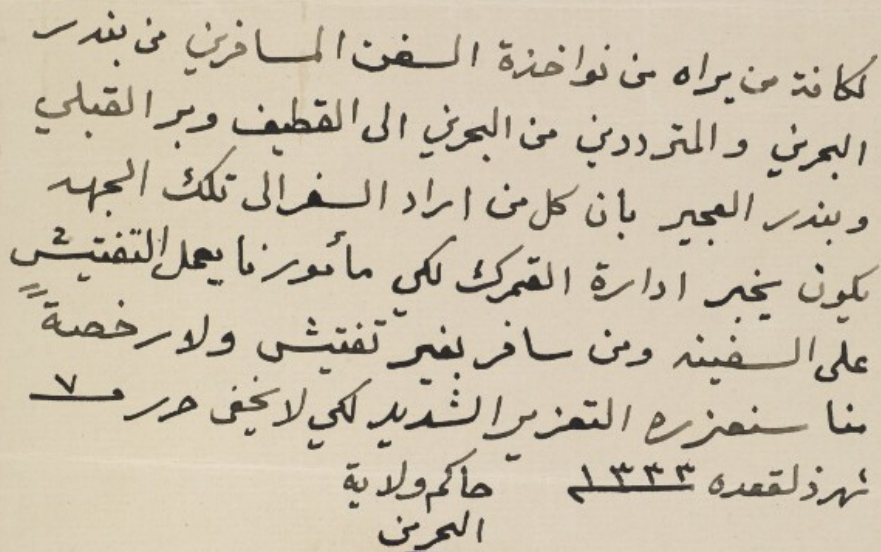 لكافة من يراه من نواخذة السفن المسافرين من بندر
البحرين والمترددين من البحرين الى القطيف وبر القبلي
وبندر العجير بان كل من اراد السفر الى تلك الجهه
يكون يخبر ادارة القمرك لكي مأمورنا يعمل التفتيش
على السفينه ومن سافر بغير تفتيش ولا رخصة
منا سنعزره التعزير الشديد لكي لا يخفى حرر ٧
شهر ذلقعده ١٣٣٣ حاكم ولاية
البحرين